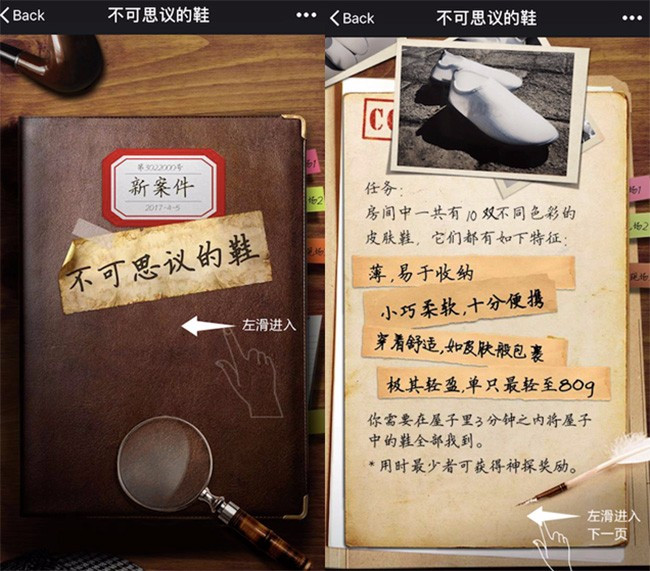 Back
不可思议的鞋
第3022000号
新案件
2017-4-5
不可思议的鞋
左滑进入
Back
不可思议的鞋
任务：
房间中一共有10双不同色彩的
皮肤鞋，它们都有如下特征：
薄，易于收纳
小巧柔软，十分便携
穿着舒适，如皮肤般包裹
极其轻盈，单只最轻至80g
你需要在屋子里3分钟之内将屋子
中的鞋全部找到。
*用时最少者可获得神探奖励。
左滑进入
下一页